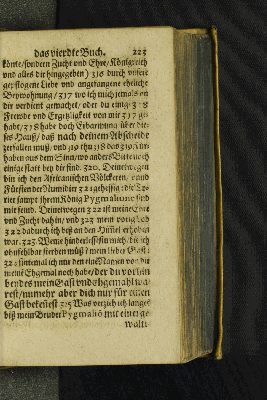 das vierdte Buch. 223
könte/sondern Zucht und Ehre/Königreich
und alles dir hingegeben) 316 durch unsere
gepflogene Liebe und angefangene eheliche
Beywohnung/317 wo ich mich jemals an
dir verdient gemachet/ oder du einige 318
Frewde und Ergetzligkeit von mir 317 ge
habt/318 habe doch Erbarmung über die-
ses Hauß/ daß nach deinem Abscheide
zerfallen muß/ und 319 thu
haben aus dem Sinn/wo anders Bitte noch
einige statt bey dir find. 320. Deinetwegen
bin ich den Africanischen Völckern/ und
Fürsten der Numidier 321 gehässig/die Ty-
rier sampt ihrem König Pygmalion sind
mir feind. Deinetwegen 322 ist meine Ehr
und Zucht dahin/ und 323 mein voriges Lob
322 dadurch ich biß an den Himmel erhaben
war. 323. Weme hinderlässestu mich/ die ich
unfehlbar sterben muß? mein lieber Gast:
324 sintemal ich nur den eine Namen von dir
meinē Ehgemal noch habe/der du vorhin
beydes mein Gast und Ehgemahl wa
rest/nunmehr aber dich nur für einen
Gast bekeñest 325 Was verzieh ich langer
biß mein Bruder Pygmaliō mit einer ge
walti